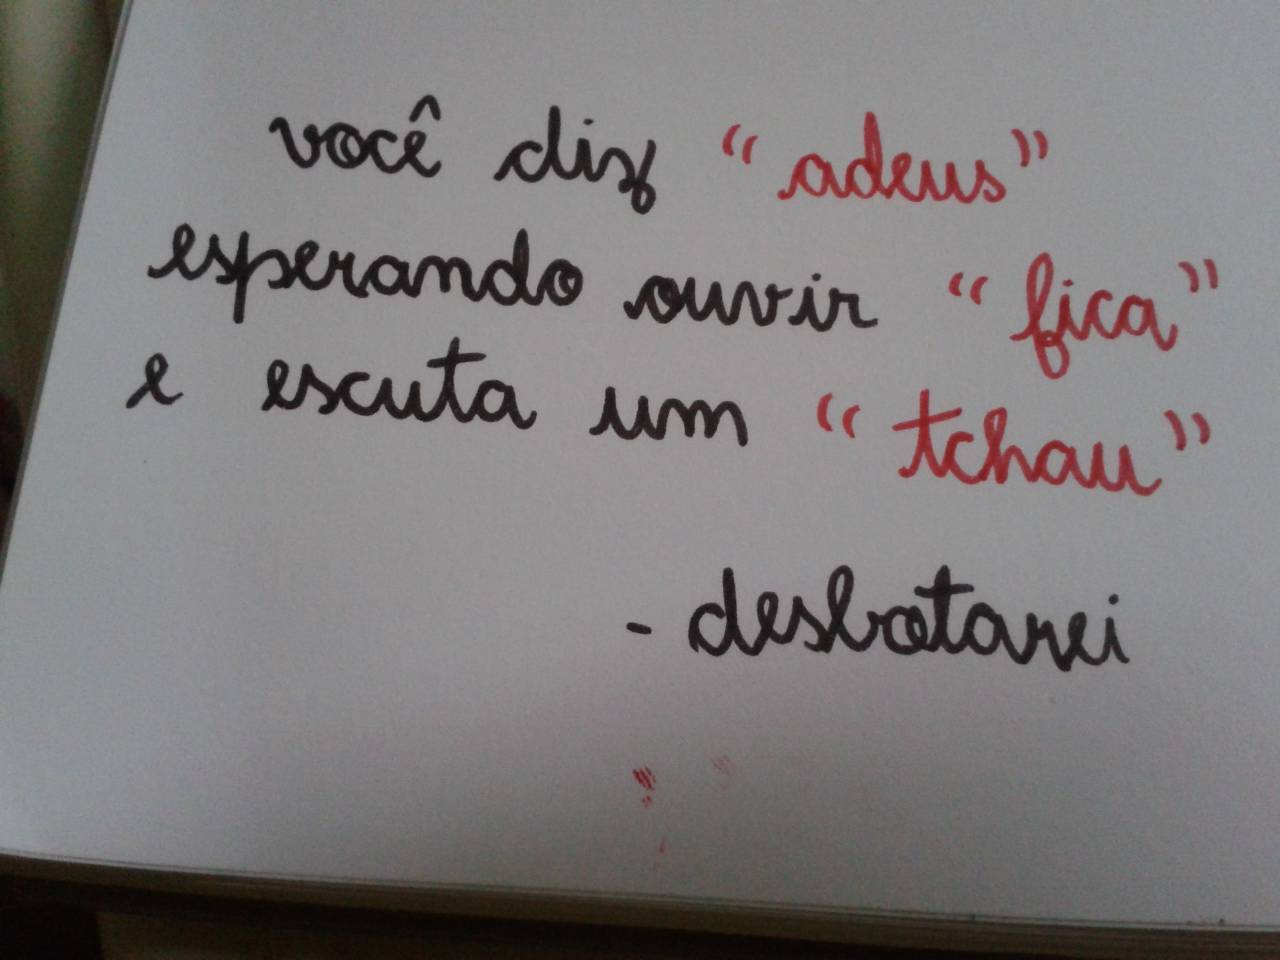 você diz “adeus”
esperando ouvir “fica”
e escuta um “tchau”
- desbotarei